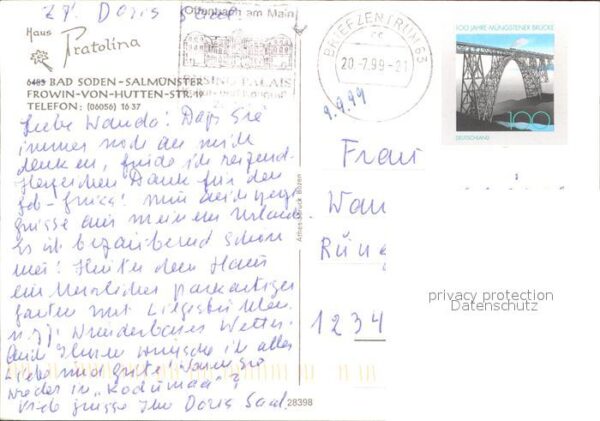 Haus
Pratolina
6483 BAD SODEN-SALMÜNSTER
FROWIN-VON-HUTTEN-STR. 19
TELEFON: (06056) 16 37
Offenbach am Main
BRIEFZENTRUM 63
20.-7.99-21
9.9.99
100 JAHRE MÜNGSTENER BRÜCKE
100
DEUTSCHLAND
Liebe Wanda! Daß Sie
immer noch an mich
denken, finde ich reizend.
Herzlichen Dank für den
Geb-gruss! Nun auch
grüsse aus meinem Urlaub.
Es ist bezaubernd schön
hier! Hinter dem Haus
ein herrlicher parkartiger
Garten mit Liegestühlen
u.s.f! Wunderbares Wetter.
Auch Ihnen wünsche ich alles
Liebe und Gute! Waren Sie
wieder in "Kodumaa"?
Viele Grüsse Ihre Doris
Frau
Wan
Rün
1234
privacy protection
Datenschutz
28398